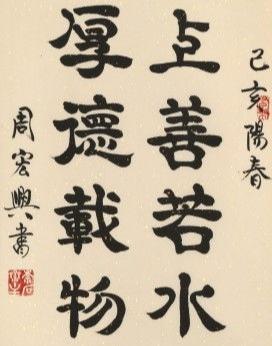 己亥陽春
上善若水
厚德載物
周宏興書